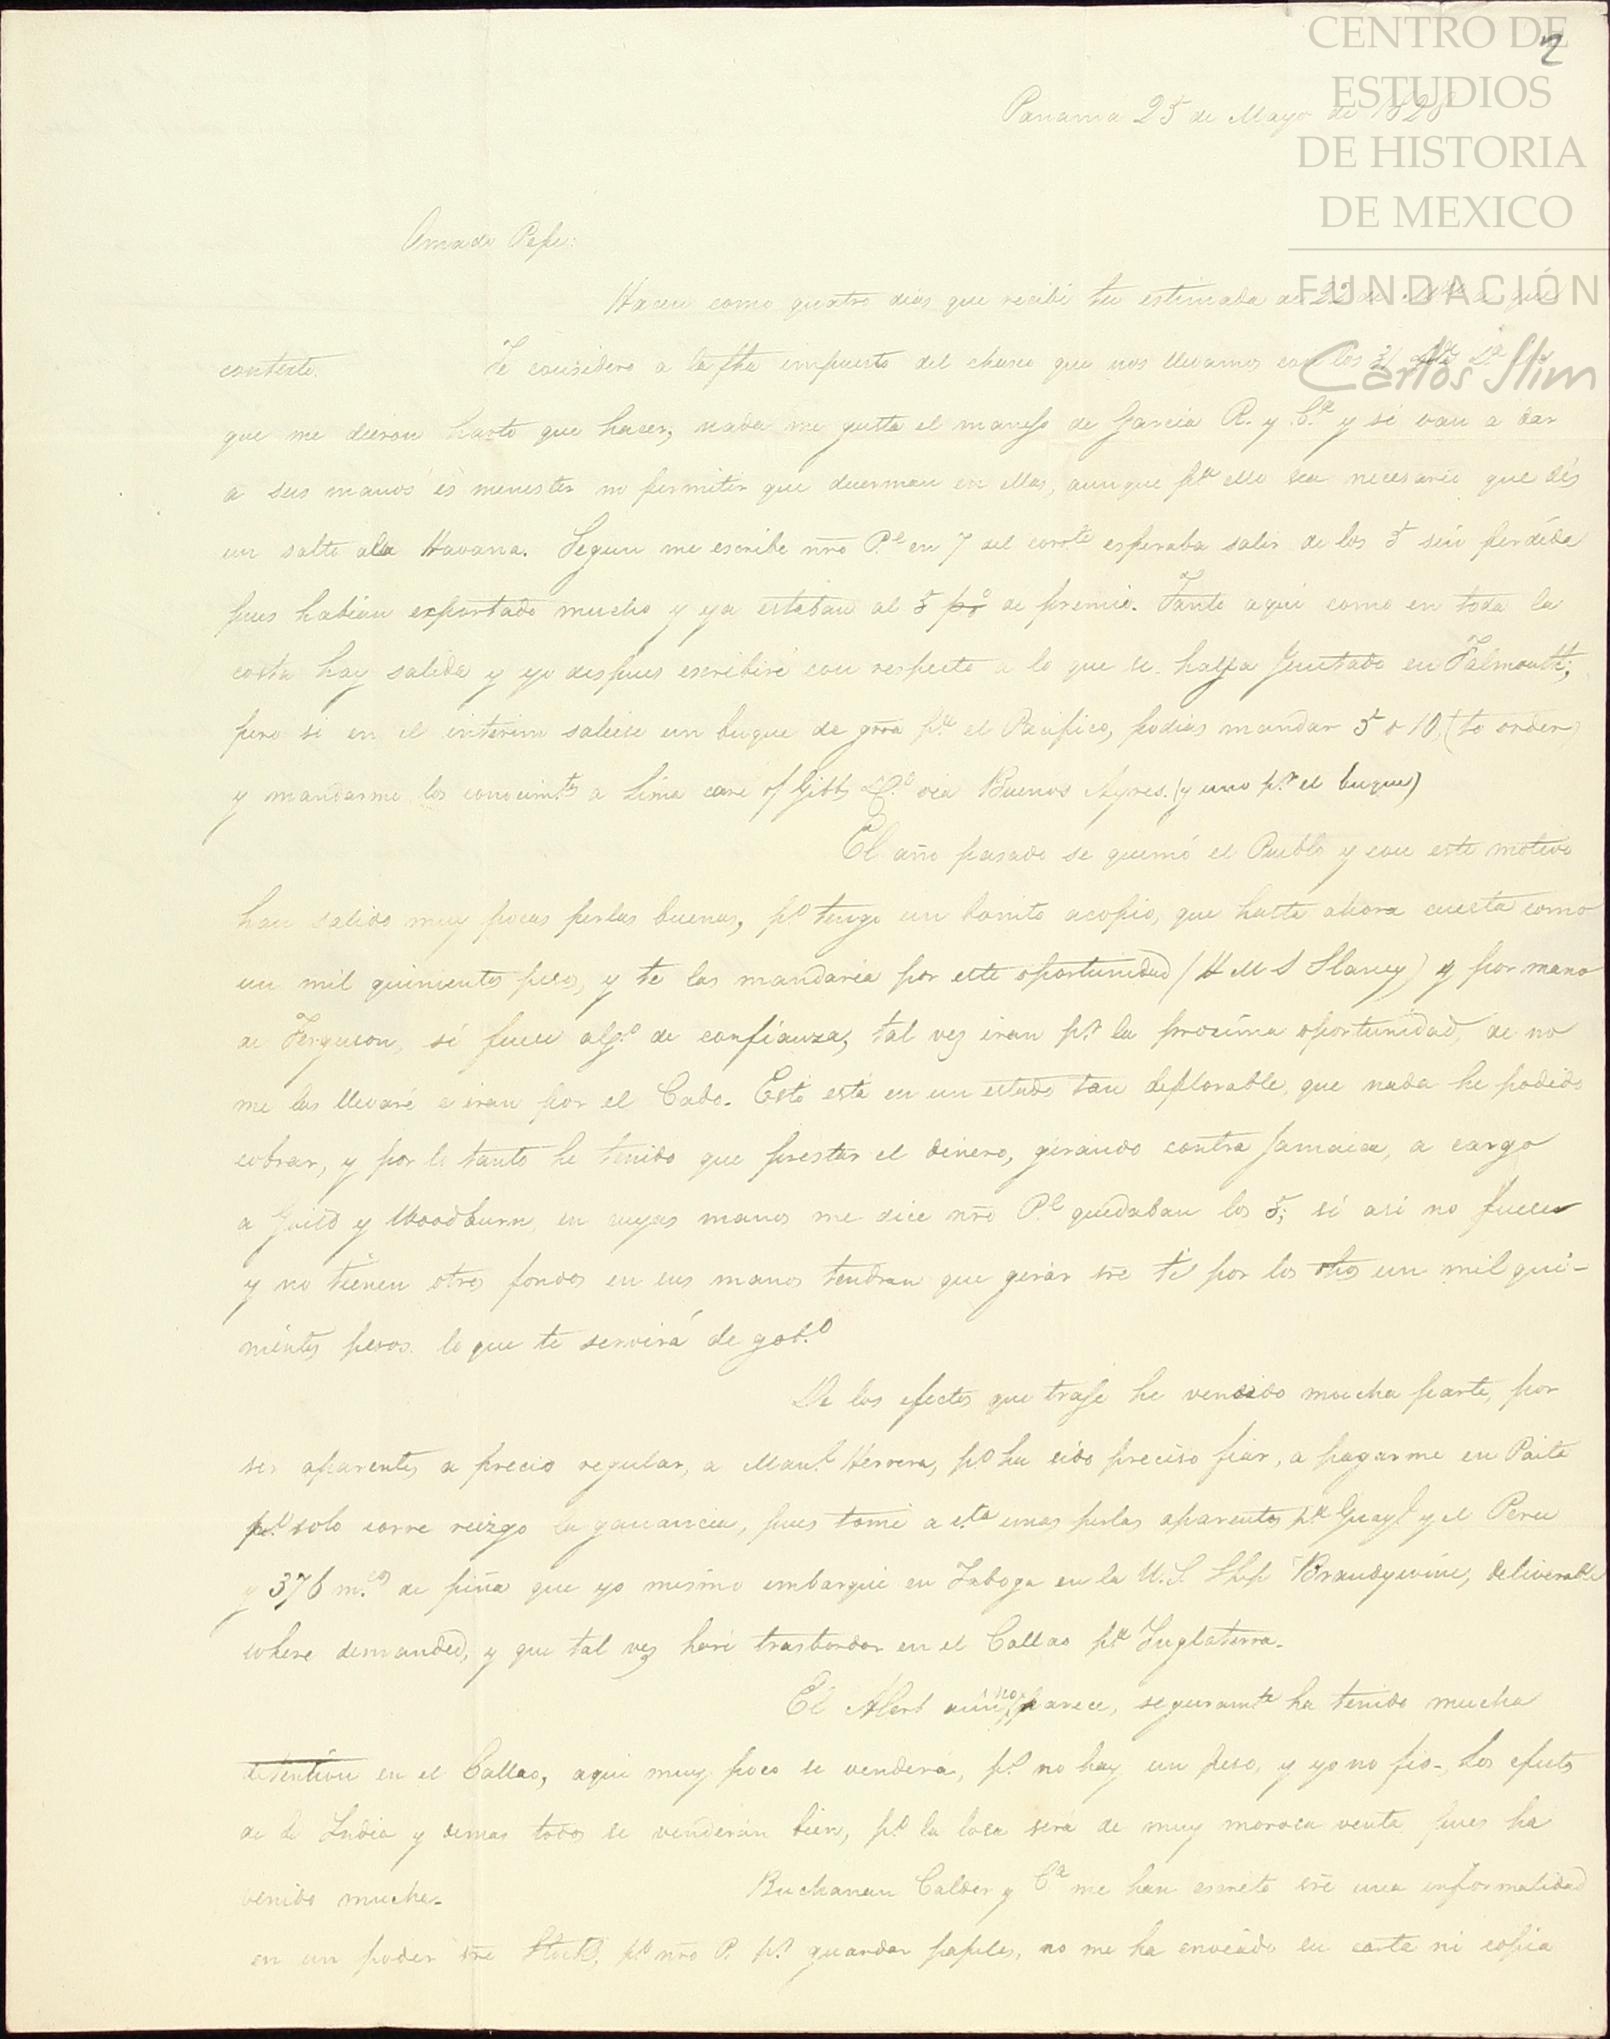 CENTRO DE
ESTUDIOS
DE HISTORIA
DE MEXICO
FUNDACIÓN
Carlos Slim
2
Panamá 25 de Mayo de 1828
Amado Pepe:
Hacen como quatro dias que recibi tu estimada de 22 de que
contesto. Te considero a la fha impuesto del chasco que nos llevamos con los
que me dieron harto que hacer; nada me gusta el manejo de Garcia R. y C.a y si van a dar
a sus manos es menester no permitir que duerman en ellas, aunque pa ello sea necesario que dés
un salto ala Havana. Segun me escribe nro P.e en 7 del corrte esperaba salir de los 5 sin perdida
pues habian exportado mucho y ya estaban al 5 p% de premio. Tanto aqui como en toda la
costa hay salida y yo despues escribiré con respecto a lo que se halla Juntado en Falmouth;
pero si en el interim saliese un buque de grra pa el Pacifico, podias mandar 5 o 10, (to order)
y mandarme los conocimtos a Lima care of Gibbs & Co via Buenos Ayres. (y uno pr el buque)
El año pasado se quemó el Pueblo y con este motivo
han salido muy pocas perlas buenas, po tengo un bonito acopio, que hasta ahora cuesta como
un mil quinientos pesos, y te las mandaria por este oportunidad (H M S Slaney) y por mano
de Ferguson, si fuese algo de confianza; tal vez iran pr la procsima oportunidad, de no
me las llevaré e iran por el Cabo. Esto está en un estado tan deplorable, que nada he podido
cobrar, y por lo tanto he tenido que prestar el dinero, girando contra Jamaica, a cargo
a Guild y Woodburn, en cuyas manos me dice nro P.e quedaban los 5; si asi no fuese
y no tienen otros fondos en sus manos tendran que girar sre ti por los dhos un mil qui-
nientos pesos. lo que te servirá de gobo
De los efectos que traje he vendido mucha parte, por
ser aparentes a precio regular, a Manl Herrera, po ha sido preciso fiar, a pagarme en Paita
po solo corre reizgo la ganancia, pues tomé a cta unas perlas aparentes pa Guayl y el Peru
y 376 mcos de piña que yo mismo embarqué en Taboga en la U.S. Ship Brandywine, deliverable
where demanded, y que tal vez haré trasbordar en el Callao pa Inglaterra.
El Alert aun no parece, seguramte ha tenido mucha
detention en el Callao, aqui muy poco se venderá, pr no hay un peso, y yo no fio-, Los efectos
de la India y demas todos se venderán bien, po la losa será de muy morosa venta pues ha
venido mucha. Buchanan Calder y Ca me han escrito sre una informalidad
en un poder sre po nro P. pr guardar papeles, no me ha enviado su carta ni copia